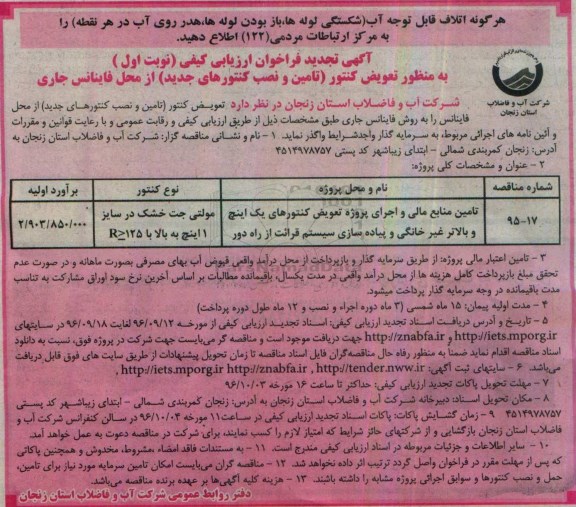 هرگونه اتلاف قابل توجه آب(شکستگی لوله ها،باز بودن لوله ها،هدر روی آب در هر نقطه) را
به مرکز ارتباطات مردمی(۱۲۲) اطلاع دهید.
آگهی تجدید فراخوان ارزیابی کیفی (نوبت اول )
به منظور تعویض کنتور (تامین و نصب کنتورهای جدید) از محل فاینانس جاری
شرکت آب و فاضلاب
استان زنجان
شرکت آب و فاضلاب استان زنجان در نظر دارد تعویض کنتور (تامین و نصب کنتورهـای جدید) از محل
فاینانس را به روش فاینانس جاری طبق مشخصات ذیل از طریق ارزیابی کیفی و رقابت عمومی و با رعایت قوانین و مقررات
و آئین نامه های اجرائی مربوط، به سرمایه گذار واجدشرایط واگذار نماید. ۱ - نام و نشانی مناقصه گزار: شرکت آب و فاضلاب استان زنجان به
آدرس: زنجان کمربندی شمالی - ابتدای زیباشهر کد پستی ۴۵۱۴۹۷۸۷۵۷
۲ - عنوان و مشخصات کلی پروژه:
شماره مناقصه نام و محل پروژه نوع کنتور برآورد اولیه
۹۵-۱۷ تامین منابع مالی و اجرای پروژه تعویض کنتورهای یک اینچ مولتی جت خشک در سایز ۲/۹۰۳/۸۵۰/۰۰۰
و بالاتر غیر خانگی و پیاده سازی سیستم قرائت از راه دور ۱ اینچ به بالا با R≥۱۲۵
۳ - تامین اعتبار مالی پروژه: از طریق سرمایه گذار و بازپرداخت از محل درآمد واقعی قبوض آب بهای مصرفی بصورت ماهانه و در صورت عدم
تحقق مبلغ بازپرداخت کامل هزینه ها از محل درآمد واقعی در مدت یکسال، باقیمانده مطالبات بر اساس آخرین نرخ سود اوراق مشارکت به تناسب
مدت باقیمانده در وجه سرمایه گذار پرداخت میشود.
۴ - مدت اولیه پیمان: ۱۵ ماه شمسی (۳ ماه دوره اجراء و نصب و ۱۲ ماه طول دوره پرداخت)
۵ - تاریخ و آدرس دریافت اسناد تجدید ارزیابی کیفی: اسناد تجدیـد ارزیابی کیفی از مورخـه ۹۶/۰۹/۱۲ لغایت ۹۶/۰۹/۱۸ در سـایتهای
http://iets.mporg.ir و http://znabfa.ir جهت دریافت موجود است و مناقصه گر می‌بایست جهت شرکت در پروژه فوق، نسبت به دانلود
اسناد مناقصه اقدام نماید ضمنا به منظور رفاه حال مناقصه‌گران فایل اسناد مناقصه تا زمان تحویل پیشنهادات از طریق سایت های فوق قابل دریافت
می‌باشد. ۶ - سایتهای ثبت آگهی: http://iets.mporg.ir http://znabfa.ir , http://tender.nww.ir ,
۷ - مهلت تحویل پاکات تجدید ارزیابی کیفی: حداکثر تا ساعت ۱۶ مورخه ۹۶/۱۰/۰۳
۸ - مکان تحویل اسناد: دبیرخانه شرکت آب و فاضلاب استان زنجان به آدرس: زنجان کمربندی شمالی - ابتدای زیباشهر کد پستی
۴۵۱۴۹۷۸۷۵۷ ۹ - زمان گشایش پاکات: پاکات اسناد تجدید ارزیابی کیفی در ساعت۱۱ مورخه ۹۶/۱۰/۰۴ در سالن کنفرانس شرکت آب و
فاضلاب استان زنجان بازگشایی و از شرکتهای حائز شرایط که امتیاز لازم را کسب نمایند، برای شرکت در مناقصه دعوت به عمل خواهد آمد.
۱۰ - سایر اطلاعات و جزئیات مربوطه در اسناد ارزیابی کیفی مندرج است. ۱۱ - به مستندات فاقد امضاء ،مشروط، مخدوش و همچنین پاکاتی
که پس از مهلت مقرر در فراخوان واصل گردد ترتیب اثر داده نخواهد شد. ۱۲ - مناقصه گران می‌بایست امکان تامین سرمایه مورد نیاز برای تامین،
حمل و نصب کنتورها و سوابق اجرائی پروژه مشابه را داشته باشند. ۱۳ - هزینه کلیه آگهی‌ها بر عهده برنده مناقصه می‌باشد.
دفتر روابط عمومی شرکت آب و فاضلاب استان زنجان